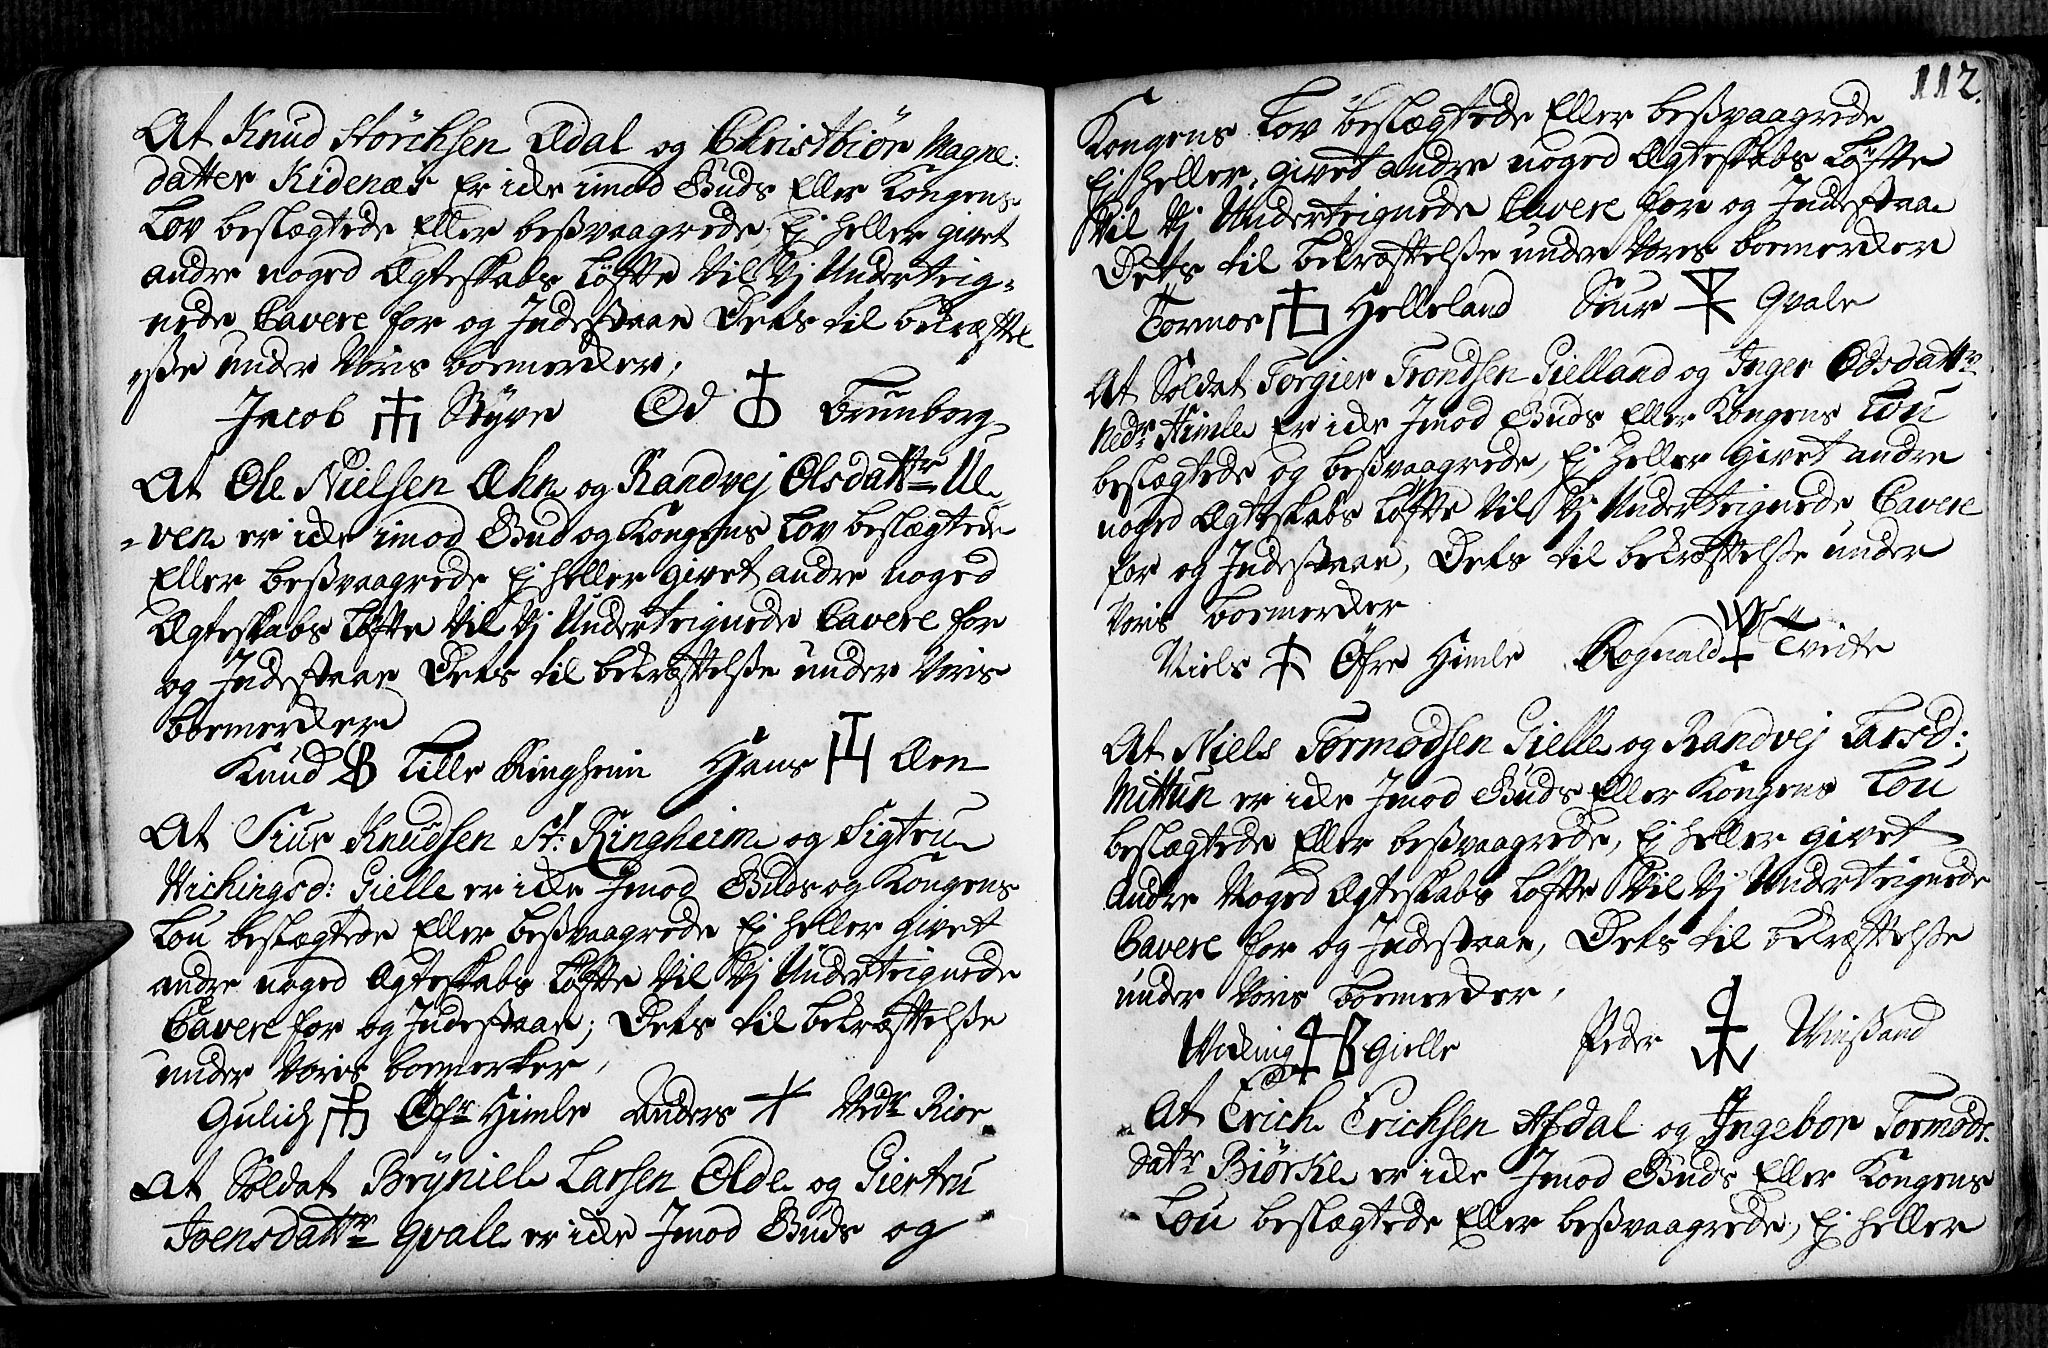 At Knud Størchsen Ædal og Christbiør Magne:
datter Kidenæs Er icke imod Guds Eller Kongens
Lov beslægtede Eller beßvaagrede, Ej heller givet
andre noged Ægteskabs Løfte Vil Vj Underteig-
nede Cavere for og Indestaae Dets til bekræftel
eße under Voris boemercker,
Jacob Styve Od Brunborg
At Ole Nielsen Æhn og Randvej Olsdattr Ul-
-ven er icke imod Gud og Kongens Lov beslægtede
Eller beßvaagrede Ej heller givet andre noged
Ægteskabs Løfte Vil Vj Underteignede Cavere for
og Indestaae Dets til bekræftelße under Voris
boemercker
Knud Lille Ringheim Hans Æen
At Siur Knudsen St: Ringheim og Sigtru
Wichingsd: Gielle er icke Imod Guds og Kongens
Lou beslægtede Eller beßvaagrede Ej heller givet
andre noged Ægteskabs Løfte Vil Vj Underteignede
Cavere for og Indestaae; Dets til bekræftelße
under Voris boemerker,
Gulich Øfr Himle Anders Nedr Rioe
At Soldat Brÿniel Larsen Olde og Giertru
Joensdattr Qvale er icke Imod Guds og
112.
Kongens Lov beslægtede Eller beßvaagrede
Ej heller, givet andre noged Ægteskabs Løfte
Vil Vj Underteignede Cavere for og Indestaae
Dets til bekræftelße under Vores boemercker
Tormoe Helleland Siur Qvale
At Soldat Torgier Trondsen Gielland og Inger Odsdattr
Nedr Himle Er icke Imod Guds Eller Kongens Lou
beslægtede og beßvaagrede, Ej heller givet andre
noged Ægteskabs Løfte Vil Vj Underteignede Cavere
for og Indestaae, Dets til bekræftelße under
Voris boemercker
Niels Øfre Himle Rognald Tveite
At Niels Tormodsen Gielle og Randvej Larsd:
Mittun er icke Imod Guds Eller Kongens Lou
beslægtede Eller beßvaagrede, Ej heller givet
andre Noged Ægteskabs Løfte Vil Vj Underteignede
Cavere for og Indestaae, Dets til bekræftelße
under Voris boemercker,
Wicking Gielle Peder Winßand
At Erich Erichsen Afdal og Ingebor Tormods-
dattr Biørke er icke Imod Guds Eller Kongens
Lou beslægtede Eller beßvaagrede, Ej heller